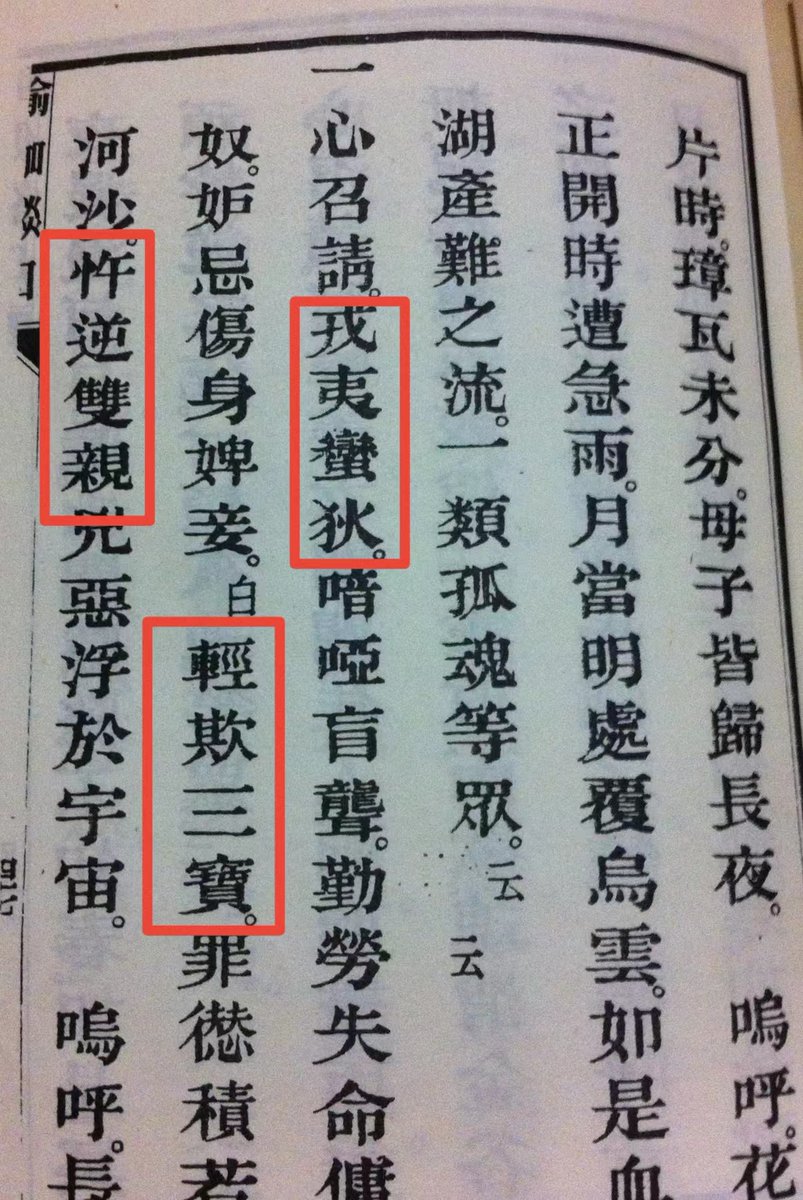 片時。璋瓦未分。母子皆歸長夜。 嗚呼。花
正開時遭急雨。月當明處覆烏雲。如是血
湖產難之流。一類孤魂等眾。云云
一心召請。戎夷蠻狄。喑啞盲聾。勤勞失命傭
奴。妒忌傷身婢妾。白輕欺三寶。罪愆積若
河沙。忤逆雙親。兇惡浮於宇宙。 嗚呼。長